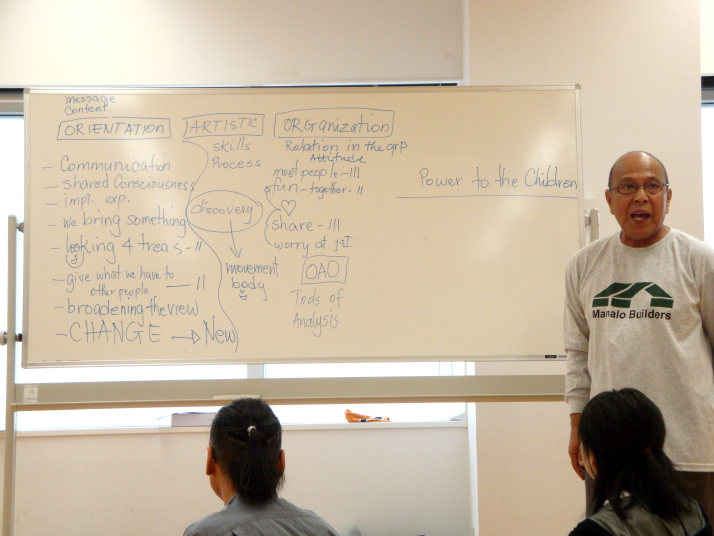 Message
Content
ORIENTATION
- Communication
- Shared Consciousness
- impl. exp.
- We bring something
- looking 4 treas - 11
- give what we have to
other people — 11
- broadening the view
- CHANGE → New
ARTISTIC
Skills
Process
discovery
movement
body
ORGanization
Relation in the grp
Attitude
meet people - 111
fun - together - 11
share - 111
worry at 1st
OAO
Tools of
Analysis
Power to the Children
Manalo Builders